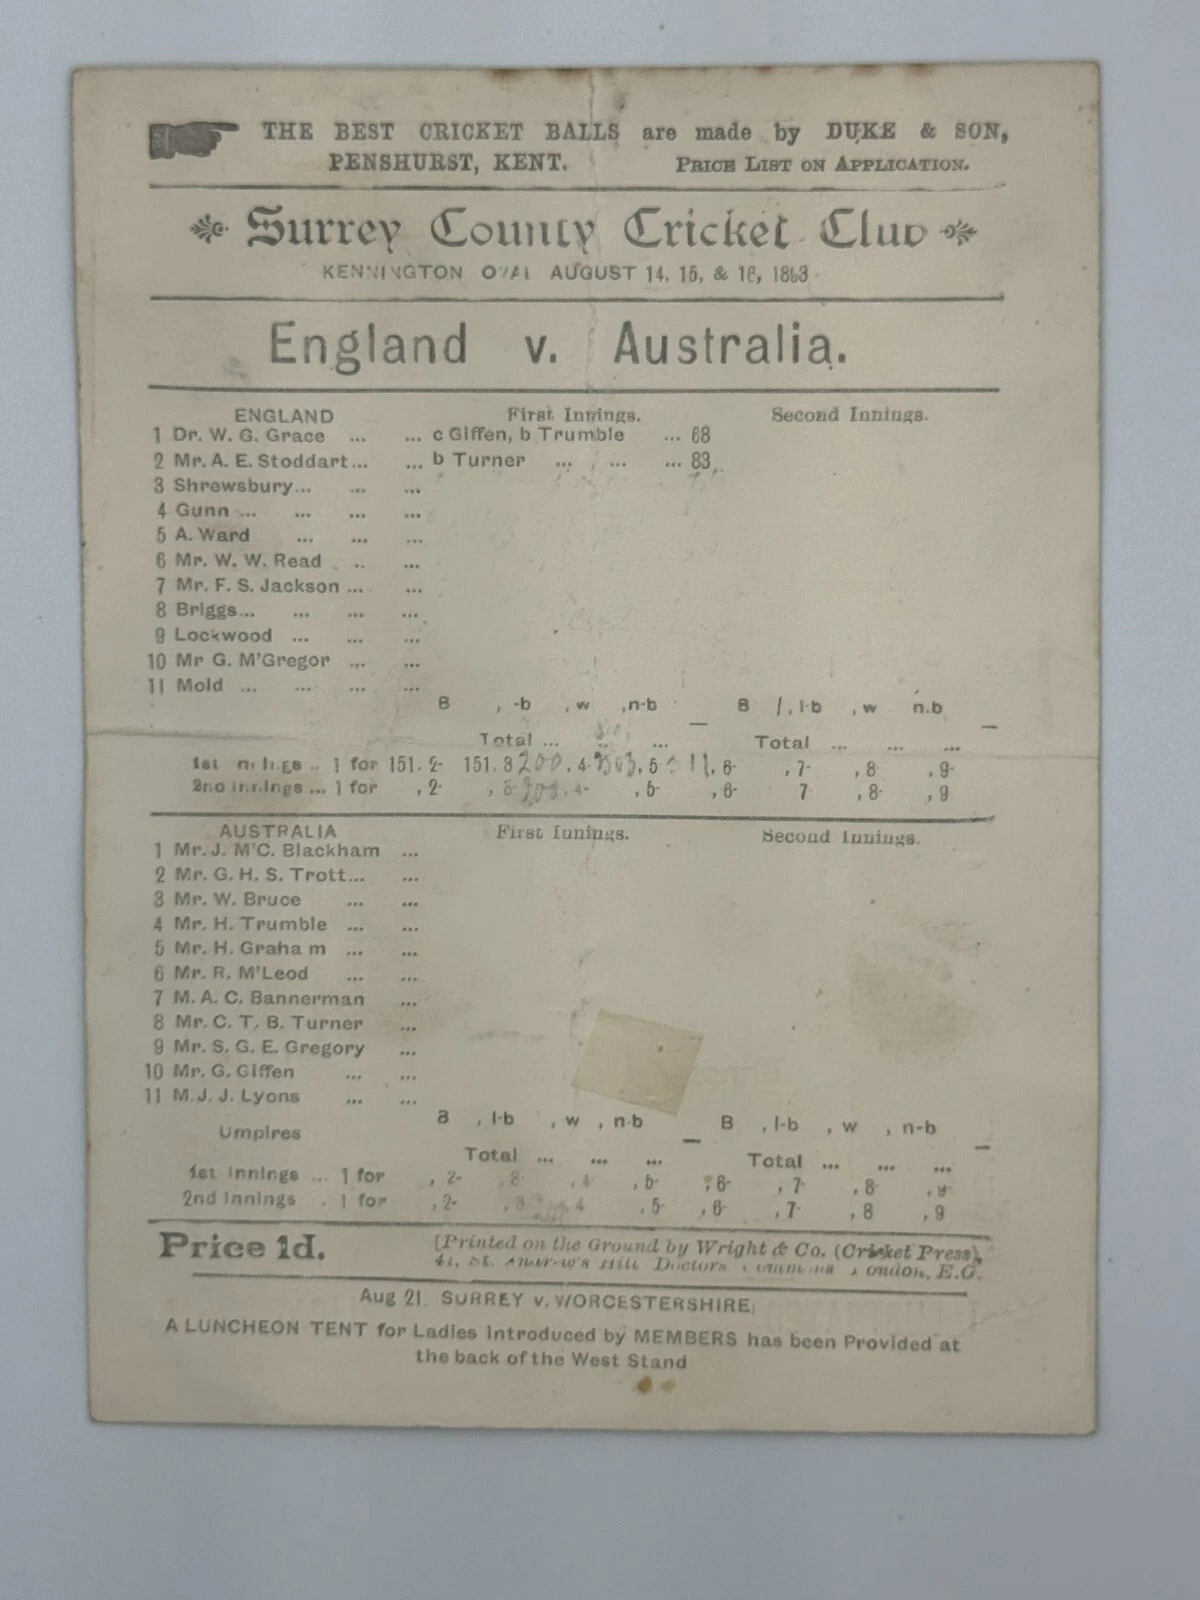 THE BEST CRICKET BALLS are made by DUKE & SON,
PENSHURST, KENT. PRICE LIST ON APPLICATION.
Surrey County Cricket Club
KENNINGTON OVAL AUGUST 14, 15, & 16, 1893
England v. Australia.
ENGLAND First Innings. Second Innings.
1 Dr. W. G. Grace ... ... c Giffen, b Trumble ... 68
2 Mr. A. E. Stoddart... ... b Turner ... ... ... 83
3 Shrewsbury... ... ...
4 Gunn ... ... ... ...
5 A. Ward ... ... ...
6 Mr. W. W. Read .. ...
7 Mr. F. S. Jackson ... ...
8 Briggs... ... ... ...
9 Lockwood ... ... ...
10 Mr G. M'Gregor ... ...
11 Mold ... ... ... ...
B , -b , w ,n-b B , l-b , w n.b
Total ... ... ... Total ... ... ...
1st innings .. 1 for 151. 2- 151. 3 200, 4- 303, 5 311, 6- , 7- , 8 , 9-
2nd innings ... 1 for , 2- , 3- , 4- , 5- , 6- 7 , 8- , 9
AUSTRALIA First Innings. Second Innings.
1 Mr. J. M'C. Blackham ...
2 Mr. G. H. S. Trott... ...
3 Mr. W. Bruce ... ...
4 Mr. H. Trumble ... ...
5 Mr. H. Graham ... ...
6 Mr. R. M'Leod ... ...
7 M. A. C. Bannerman ...
8 Mr. C. T. B. Turner ...
9 Mr. S. G. E. Gregory ...
10 Mr. G. Giffen ... ...
11 M. J. J. Lyons ... ...
B , l-b , w , n-b B , l-b , w , n-b
Umpires
Total ... ... ... Total ... ... ...
1st innings ... 1 for , 2- , 3 , 4 , 5 , 6- , 7- , 8- , 9-
2nd innings . 1 for , 2- , 3 4 , 5- , 6- , 7- , 8 , 9
Price 1d. [Printed on the Ground by Wright & Co. (Cricket Press),
41, St. Andrew's Hill Doctors Commons London, E.C.
Aug 21. SURREY v. WORCESTERSHIRE,
A LUNCHEON TENT for Ladies introduced by MEMBERS has been Provided at
the back of the West Stand